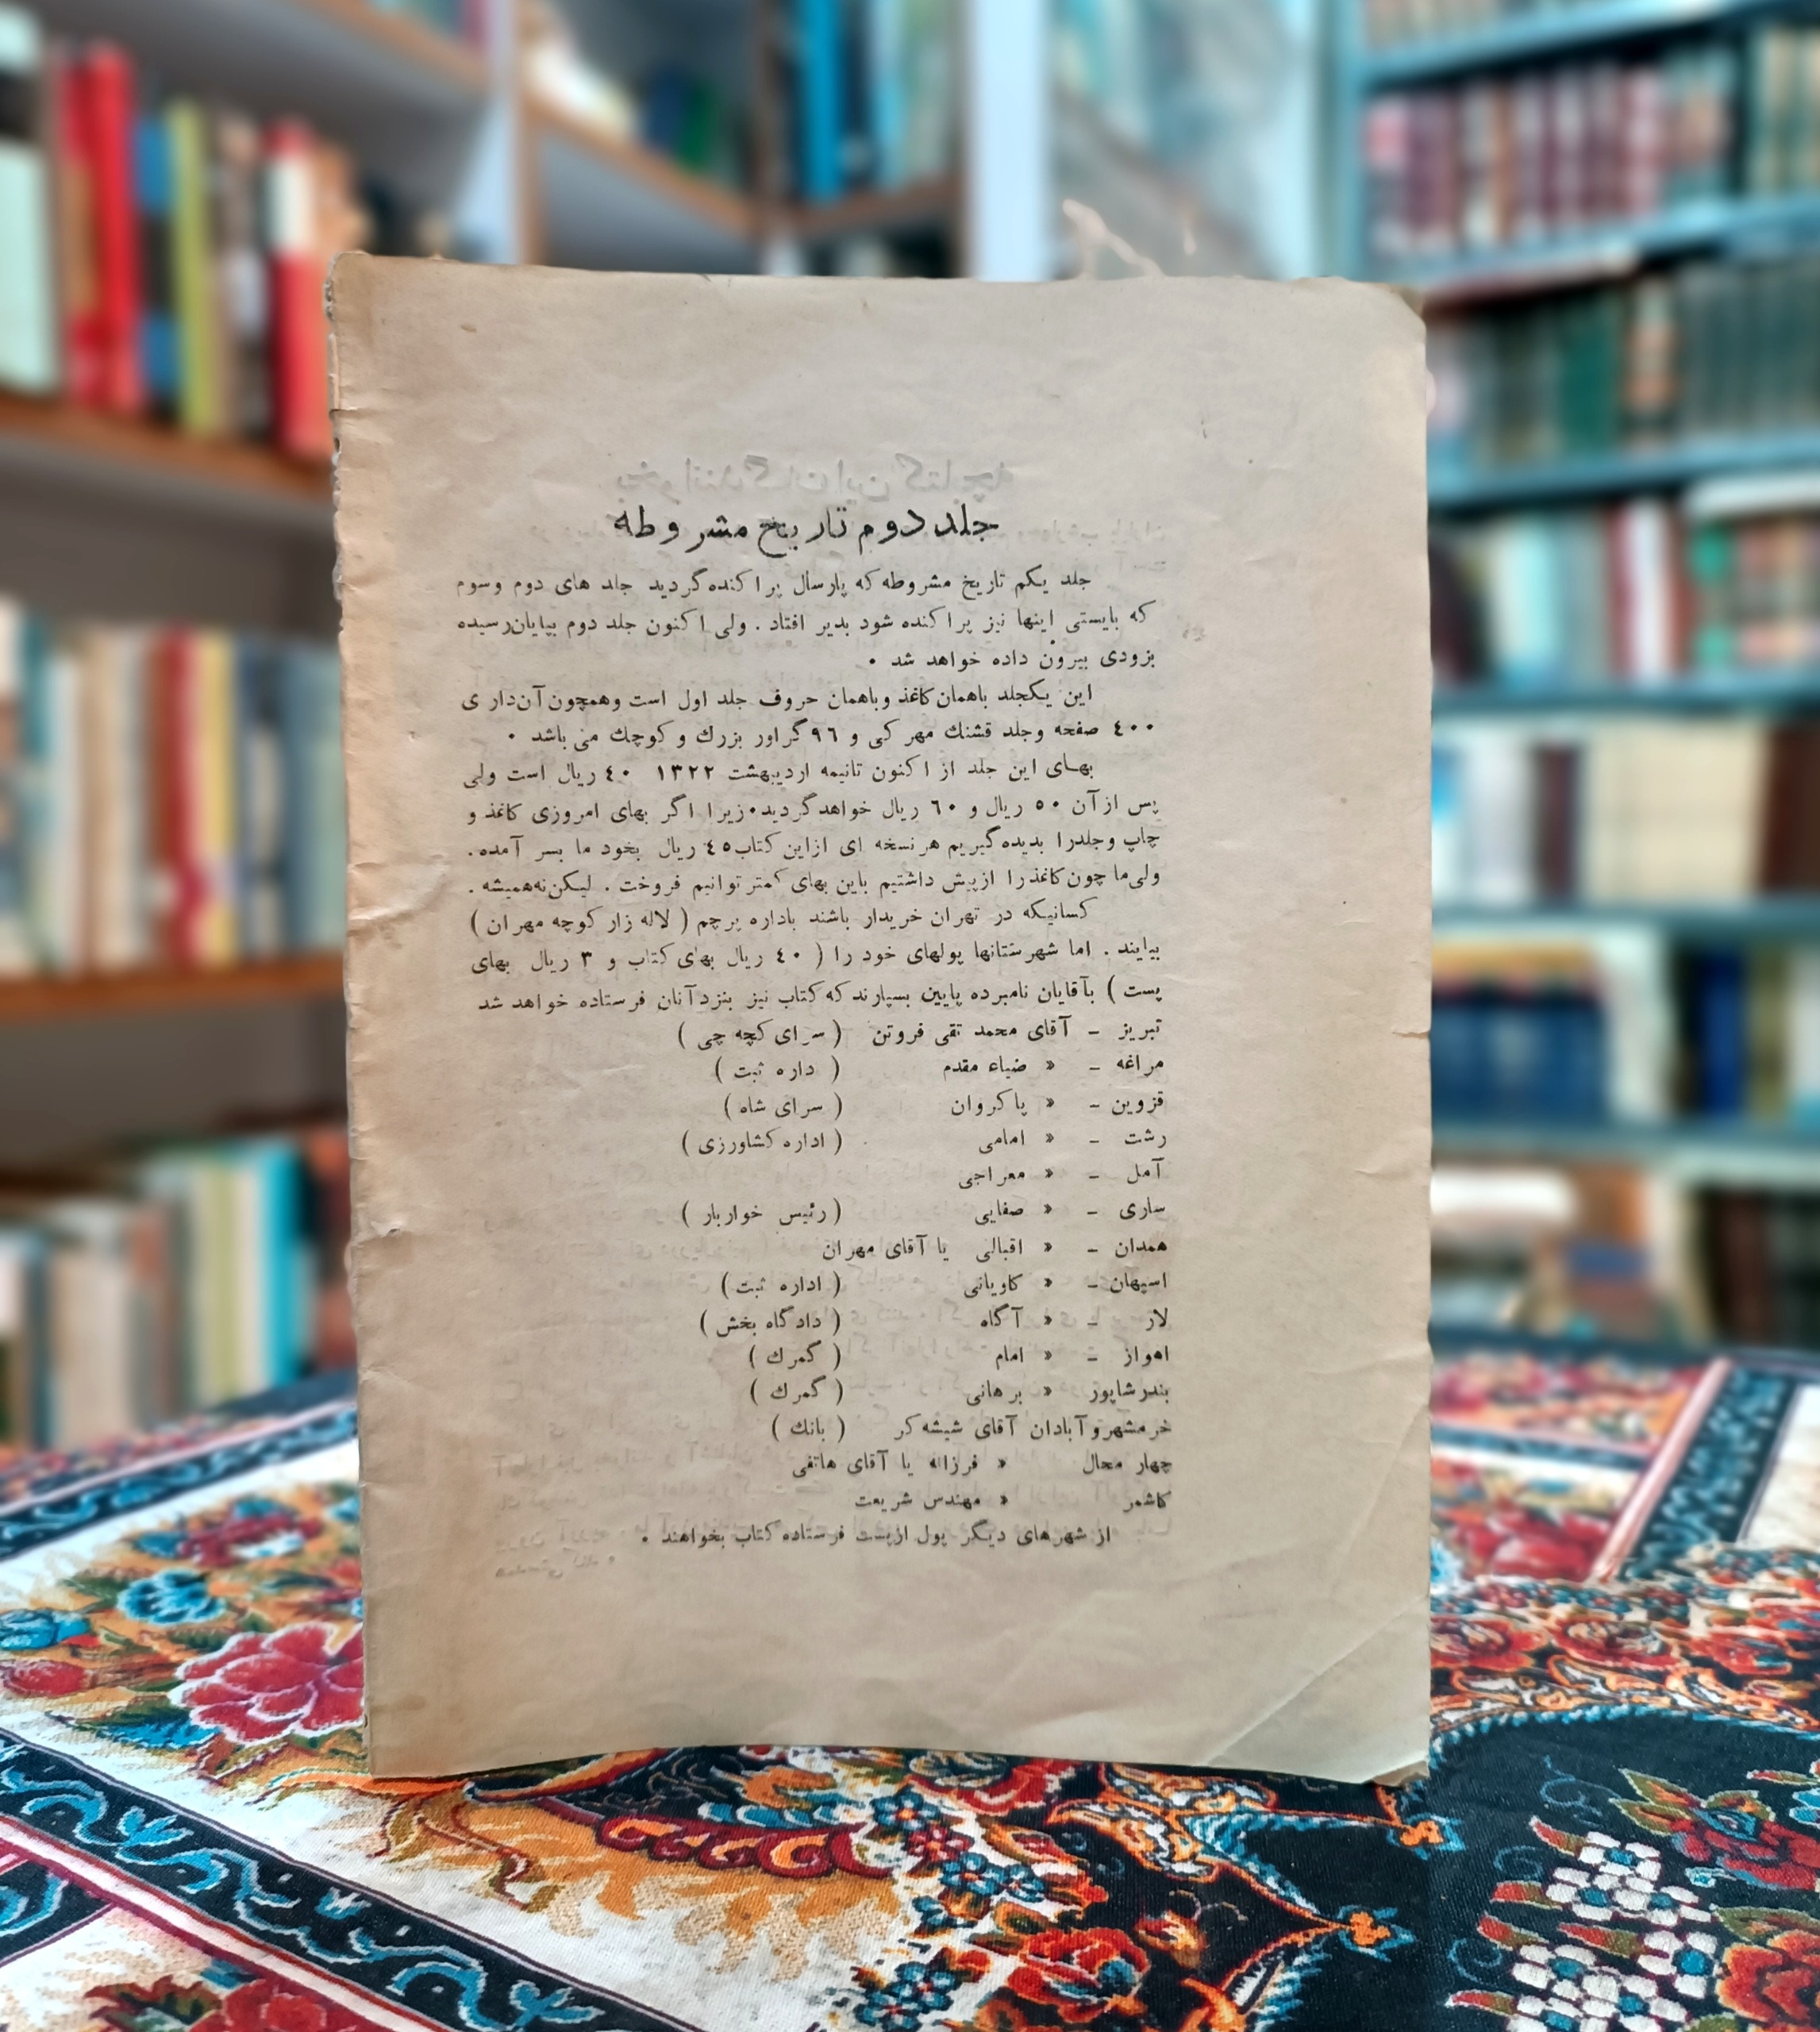 جلد دوم تاریخ مشروطه
جلد یکم تاریخ مشروطه که پارسال پراکنده گردید جلد های دوم وسوم
که بایستی اینها نیز پراکنده شود بدیر افتاد . ولی اکنون جلد دوم بپایان رسیده
بزودی بیرون داده خواهد شد .
این یکجلد باهمان کاغذ وباهمان حروف جلد اول است وهمچون آن دارای
٤٠٠ صفحه وجلد قشنك مهرکی و ٩٦ گراور بزرك و کوچك می باشد .
بهای این جلد از اکنون تانیمه اردیبهشت ١٣٢٢ ٤٠ ریال است ولی
پس از آن ٥٠ ریال و ٦٠ ریال خواهد گردید . زیرا اگر بهای امروزی کاغذ و
چاپ وجلدرا بدیده گیریم هر نسخه ای ازاین کتاب ٤٥ ریال بخود ما بسر آمده .
ولی ما چون کاغذ را از پیش داشتیم باین بهای کمتر توانیم فروخت . لیکن نه همیشه .
کسانیکه در تهران خریدار باشند باداره پرچم ( لاله زار کوچه مهران )
بیایند . اما شهرستانها پولهای خود را ( ٤٠ ریال بهای کتاب و ٣ ریال بهای
پست ) بآقایان نامبرده پایین بسپارند که کتاب نیز بنزد آنان فرستاده خواهد شد
تبریز – آقای محمد تقی فروتن ( سرای کچه چی )
مراغه – « ضیاء مقدم ( داره ثبت )
قزوین – « پاکروان ( سرای شاه )
رشت – « امامی ( اداره کشاورزی )
آمل – « معراجی
ساری – « صفایی ( رئیس خواربار )
همدان – « اقبالی یا آقای مهران
اسپهان – « کاویانی ( اداره ثبت )
لار – « آگاه ( دادگاه بخش )
اهواز – « امام ( گمرك )
بندرشاپور « برهانی ( گمرك )
خرمشهر و آبادان آقای شیشه گر ( بانك )
چهار محال « فرزانه یا آقای هاتفی
کاشمر « مهندس شریعت
از شهرهای دیگر پول ازپست فرستاده کتاب بخواهند .